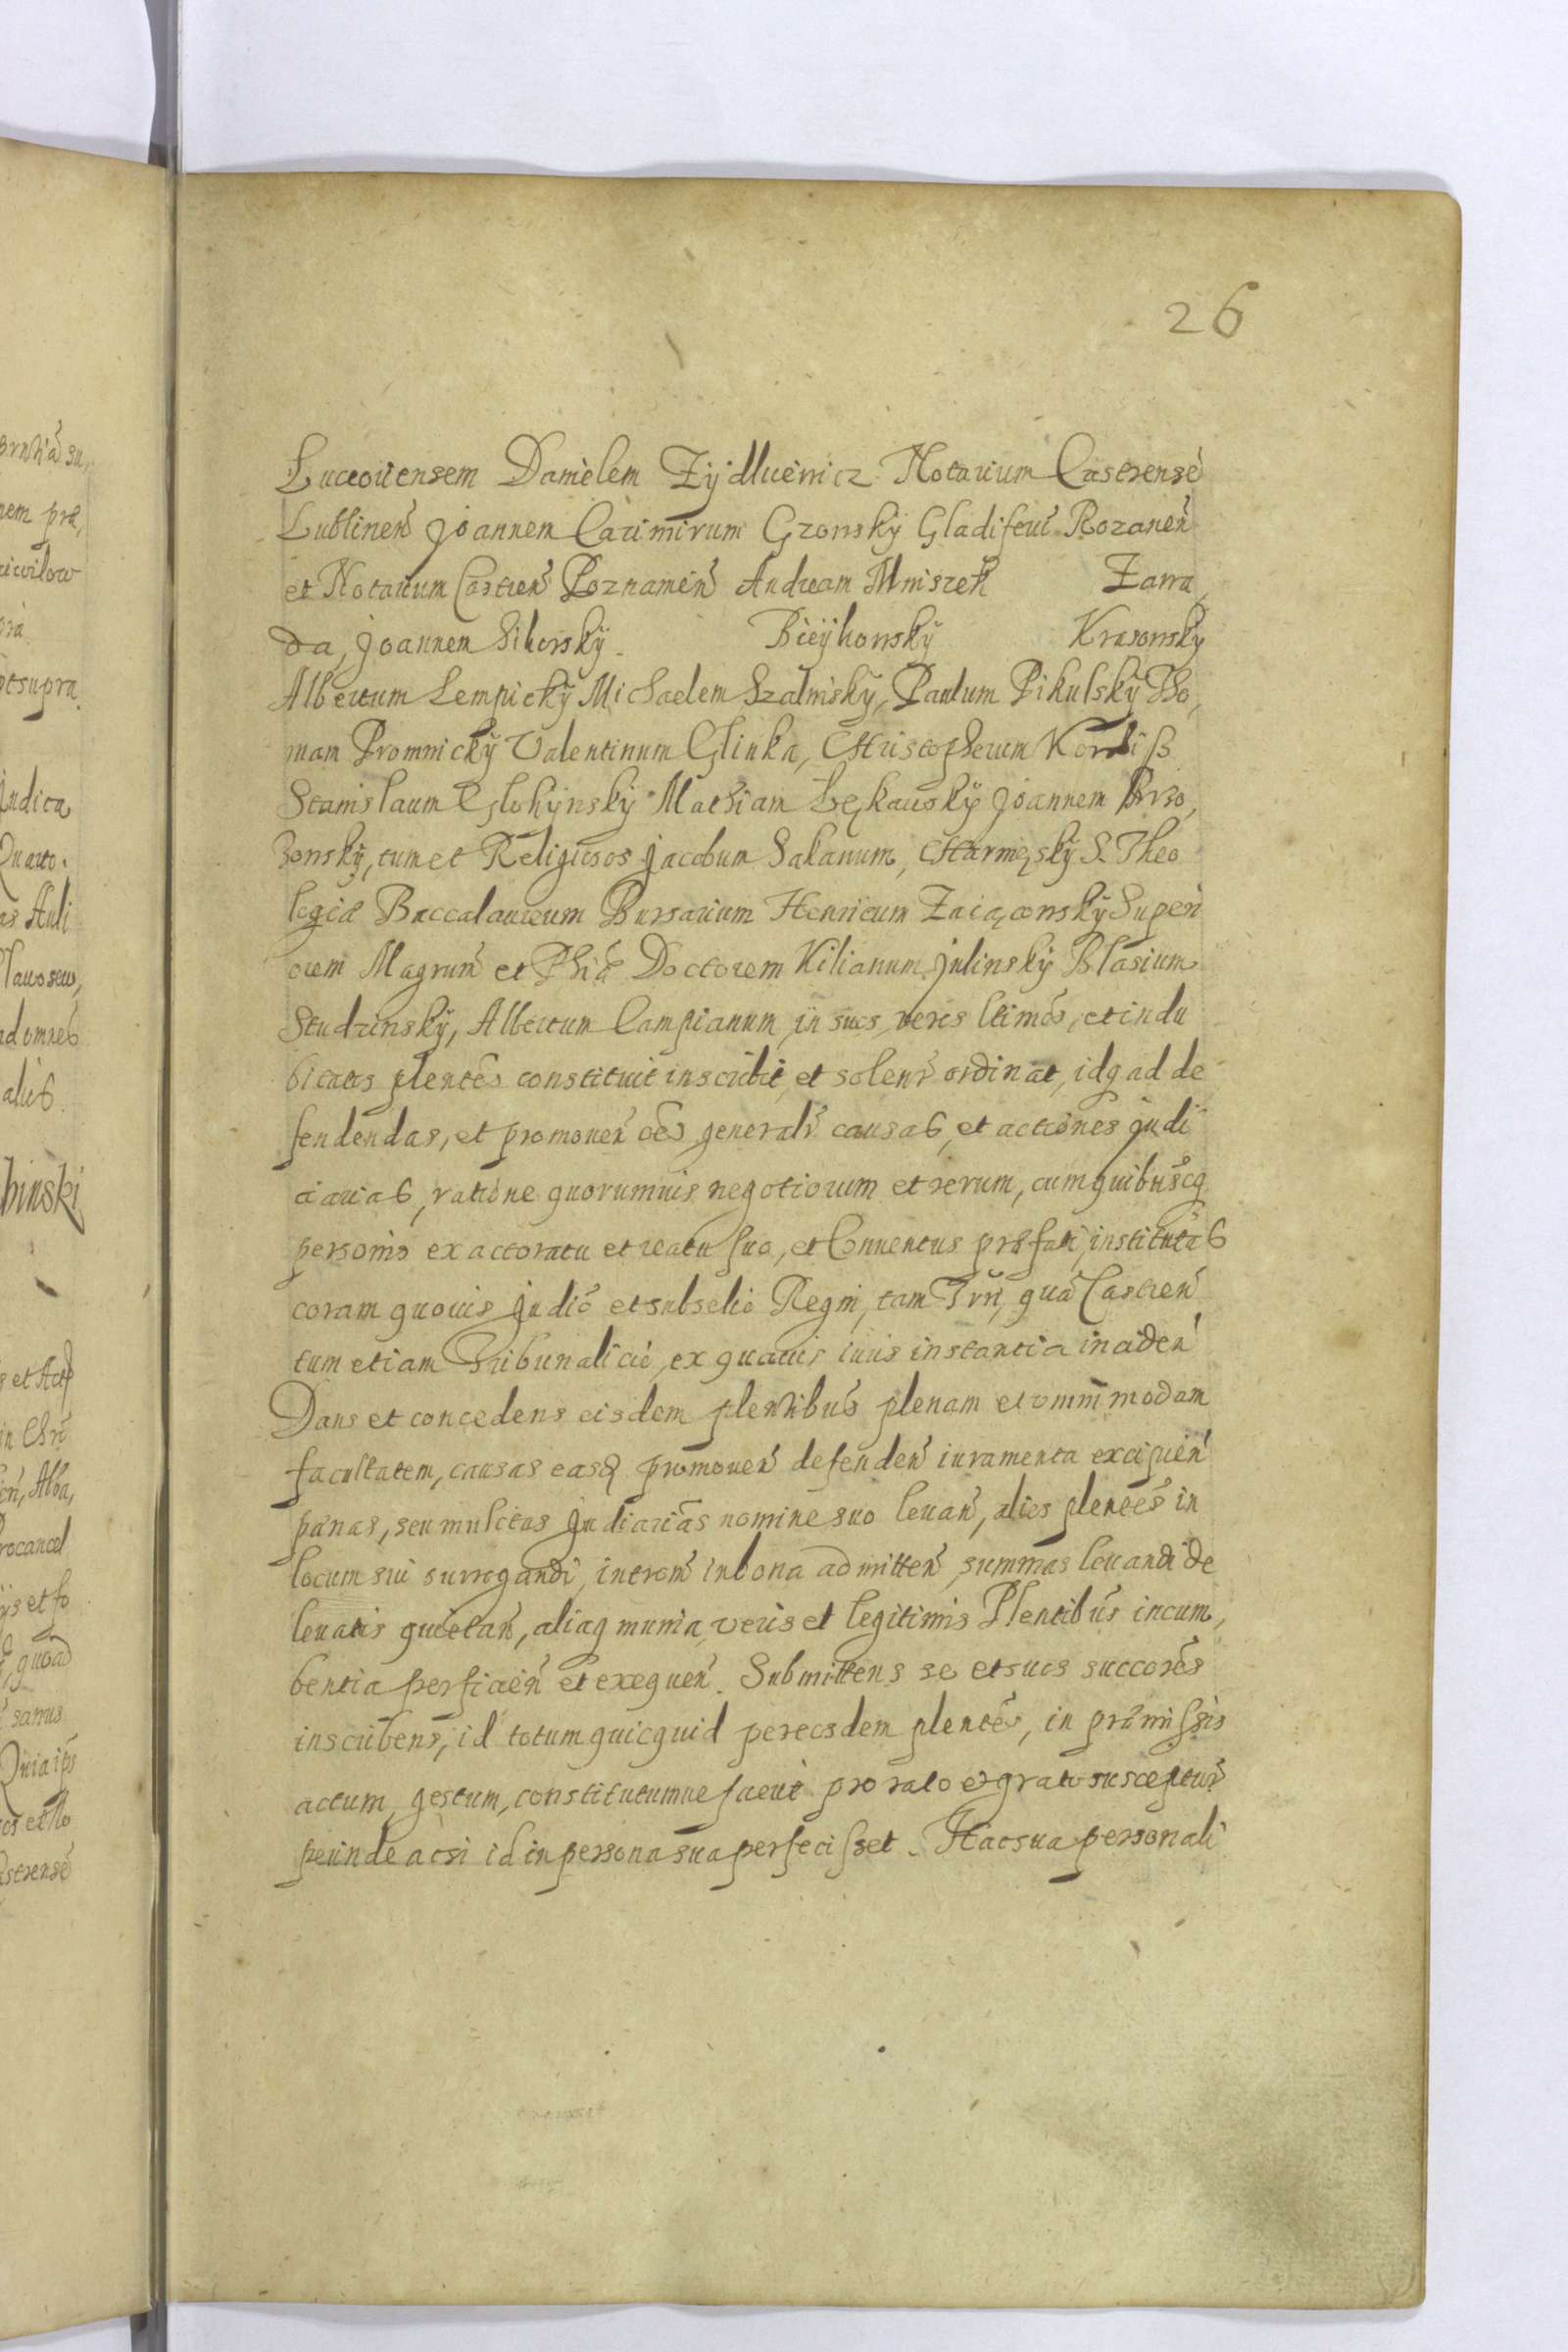 26
Luceoriensem Danielem Zÿdlúewicz Notarium Castrensē
Lublineñ Joannem Cazimirum Gzowskÿ Gladiferū Rozaneñ
et Notarium Castreñ Poznanieñ Andream Mniszek Zawa,
da, Joannem Sikorskÿ. Bieÿkowskÿ Krasowskÿ
Albertum Lempickÿ Michaelem Szalwiskÿ, Paulum Pikulskÿ Tho,
mam Promnickÿ Valentinum Glinka, Christopherum Kordiß
Stanislaum Glokÿnskÿ Mathiam Łęskawskÿ Joannem Brzo,
zowskÿ, tum et Religiosos Jacobum Sakanum, Charmęskÿ S. Theo
logiæ Baccalaureum Bursarium Henricum Zaiączowskÿ Superi
orem Magrum et Phiæ Doctorem Kilianum Julinskÿ Blasium
Studzinskÿ, Albertum Campianum, in suos veros ltimos, et indu
bitatos plentes constituit inscribit, et soleñr ordinat, idq ad de
fendendas, et promoveñ oēs generalr causas, et actiones judi
ciarias, ratione quorumvis negotiorum et rerum, cum quibuscq
personis ex actoratu et reatu suo, et Conventus præfati, institutas
coram quovis Judiō et subselio Regni, tam Trrī, quā Castreñ
tum etiam Tribunalitio, ex quavis iuris instantia incideñ
Dans et concedens eisdem plentibus plenam et omnimodam
facultatem, causas easq promoveñ defendeñ iuramenta excipieñ
pænas, seu mulctas Judiarias nomine suo levañ, alios plentes in
locum sui surrogandi, introm in bona admitteñ, summas levandi de
levatis quietañ, aliaq munia, veris et legitimis Plentibus incum,
bentia perficieñ et exequeñ. Submittens se et suos succores
inscribens, id totum quicquid per eosdem plentes, in præmissis
actum, gestum, constitutumve fuerit pro rato et grato suscepturr
perinde ac si id in persona sua perfecisset. Hac sua personali